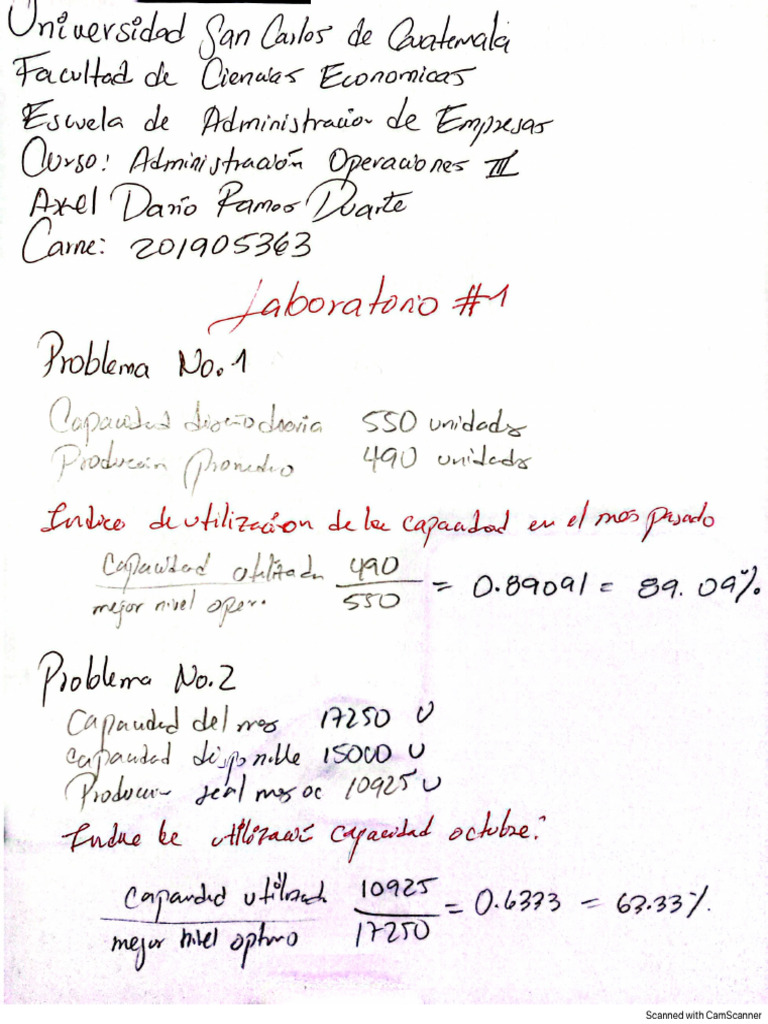 Universidad San Carlos de Guatemala
Facultad de Ciencias Economicas
Escuela de Administracion de Empresas
Curso: Administración Operaciones III
Axel Darío Ramos Duarte
Carne: 201905363
Laboratorio #1
Problema No. 1
Capacidad diseño diaria 550 unidades
Producción promedio 490 unidads
Indice de utilización de la capacidad en el mes pasado
Capacidad utilizada 490 = 0.89091 = 89.09%
mejor nivel oper. 550
Problema No. 2
Capacidad del mes 17250 U
capacidad disponible 15000 U
Produccion real mes oc 10925 U
Indice de utilizació capacidad octubre?
Capacidad utilizada 10925 = 0.6333 = 63.33%.
mejor nivel optimo 17250
Scanned with CamScanner